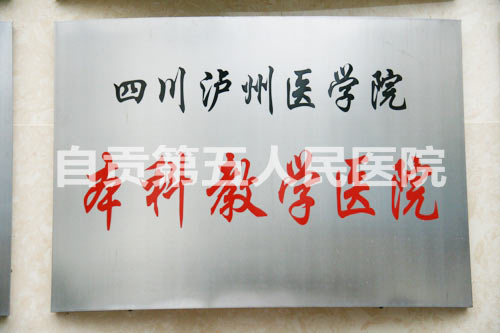 四川泸州医学院
自贡第五人民医院
本科教学医院